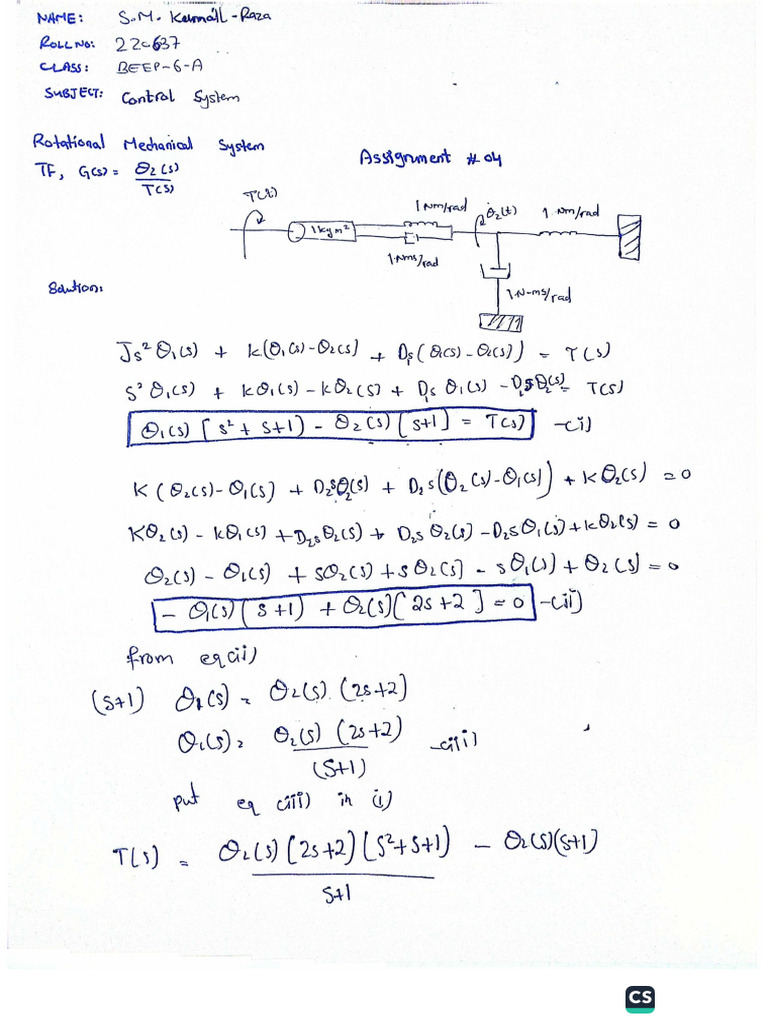 NAME: S.M. Kumail-Raza
ROLL NO: 22c637
CLASS: BEEP-6-A
SUBJECT: Control System
Rotational Mechanical System
Assignment # 04
TF, G(s) = θ2(s)/T(s)
T(t)
1 kg m²
1 Nm/rad
1 Nms/rad
θ2(t)
1 Nm/rad
1 N-ms/rad
Solution:
Js²θ1(s) + k(θ1(s)-θ2(s)) + Ds(θ(s)-θ2(s)) = T(s)
s²θ1(s) + kθ1(s) - kθ2(s) + D1s θ1(s) - D1sθ2(s) = T(s)
θ1(s) [s²+s+1) - θ2(s)[s+1] = T(s) -(i)
K(θ2(s)-θ1(s) + D2sθ2(s) + D2s(θ2(s)-θ1(s)) + kθ2(s) = 0
Kθ2(s) - kθ1(s) + D2sθ2(s) + D2sθ2(s) - D2sθ1(s) + kθ2(s) = 0
θ2(s) - θ1(s) + sθ2(s) + sθ2(s) - sθ1(s) + θ2(s) = 0
- θ1(s)(s+1) + θ2(s)[2s+2] = 0 -(ii)
from eq(ii)
(s+1) θ1(s) = θ2(s) (2s+2)
θ1(s) = θ2(s) (2s+2)/(s+1) -(iii)
put eq (iii) in (i)
T(s) = θ2(s)(2s+2)(s²+s+1)/s+1 - θ2(s)(s+1)
CS